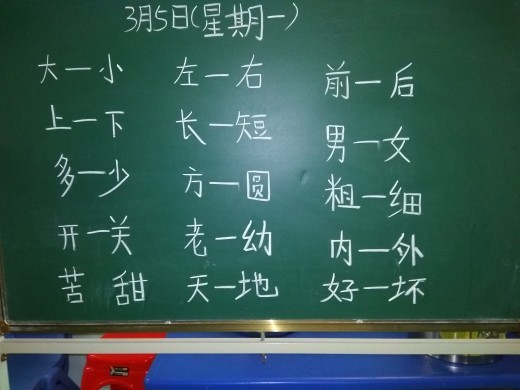 3月5日(星期一)
大一小 左一右 前一后
上一下 长一短 男一女
多一少 方一圆 粗一细
开一关 老一幼 内一外
苦 甜 天一地 好一坏